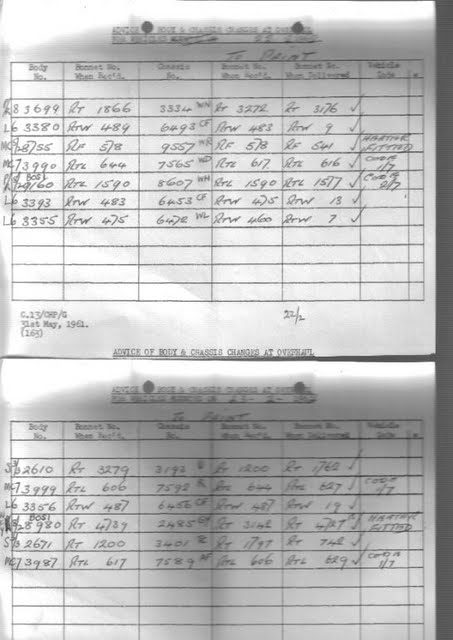 ADVICE OF BODY & CHASSIS CHANGES AT OVERHAUL
TO PRINT
Body No. Bonnet No. When Rec'd. Chassis No. Bonnet No. When Delivered Vehicle Code
3699 RT 1866 3334 WN RT 3272 RT 3176 ✓
L6 3380 RTW 489 6493 CF RTW 483 RTW 9 ✓
8755 RF 518 9557 WR RF 518 RF 541 ✓ HEATER FITTED
MC7 3990 RTL 644 7565 WD RTL 617 RTL 616 ✓ CODE 1/7
BOSI
9160 RTL 1590 8607 WH RTL 1590 RTL 1577 ✓ CODE 2/7
L6 3393 RTW 483 6453 CF RTW 475 RTW 13 ✓
L6 3355 RTW 475 6472 WL RTW 460 RTW 7 ✓
C.13/CHP/G
31st May, 1961.
(163)
22/2
ADVICE OF BODY & CHASSIS CHANGES AT OVERHAUL
ADVICE OF BODY & CHASSIS CHANGES AT OVERHAUL
TO PRINT
Body No. Bonnet No. When Rec'd. Chassis No. Bonnet No. When Delivered Vehicle Code
2610 RT 3279 3193 RT 1200 RT 1762 ✓
MC7 3999 RTL 606 7592 RTL 644 RTL 627 ✓ CODE 1/7
L6 3356 RTW 487 6456 CF RTW 487 RTW 19 ✓
BOSI
8980 RT 4739 2485 RT 3142 RT 4727 ✓ HEATER FITTED
2671 RT 1200 3401 RT 1797 RT 742 ✓
MC7 3987 RTL 617 7589 RTL 606 RTL 629 ✓ CODE 1/7